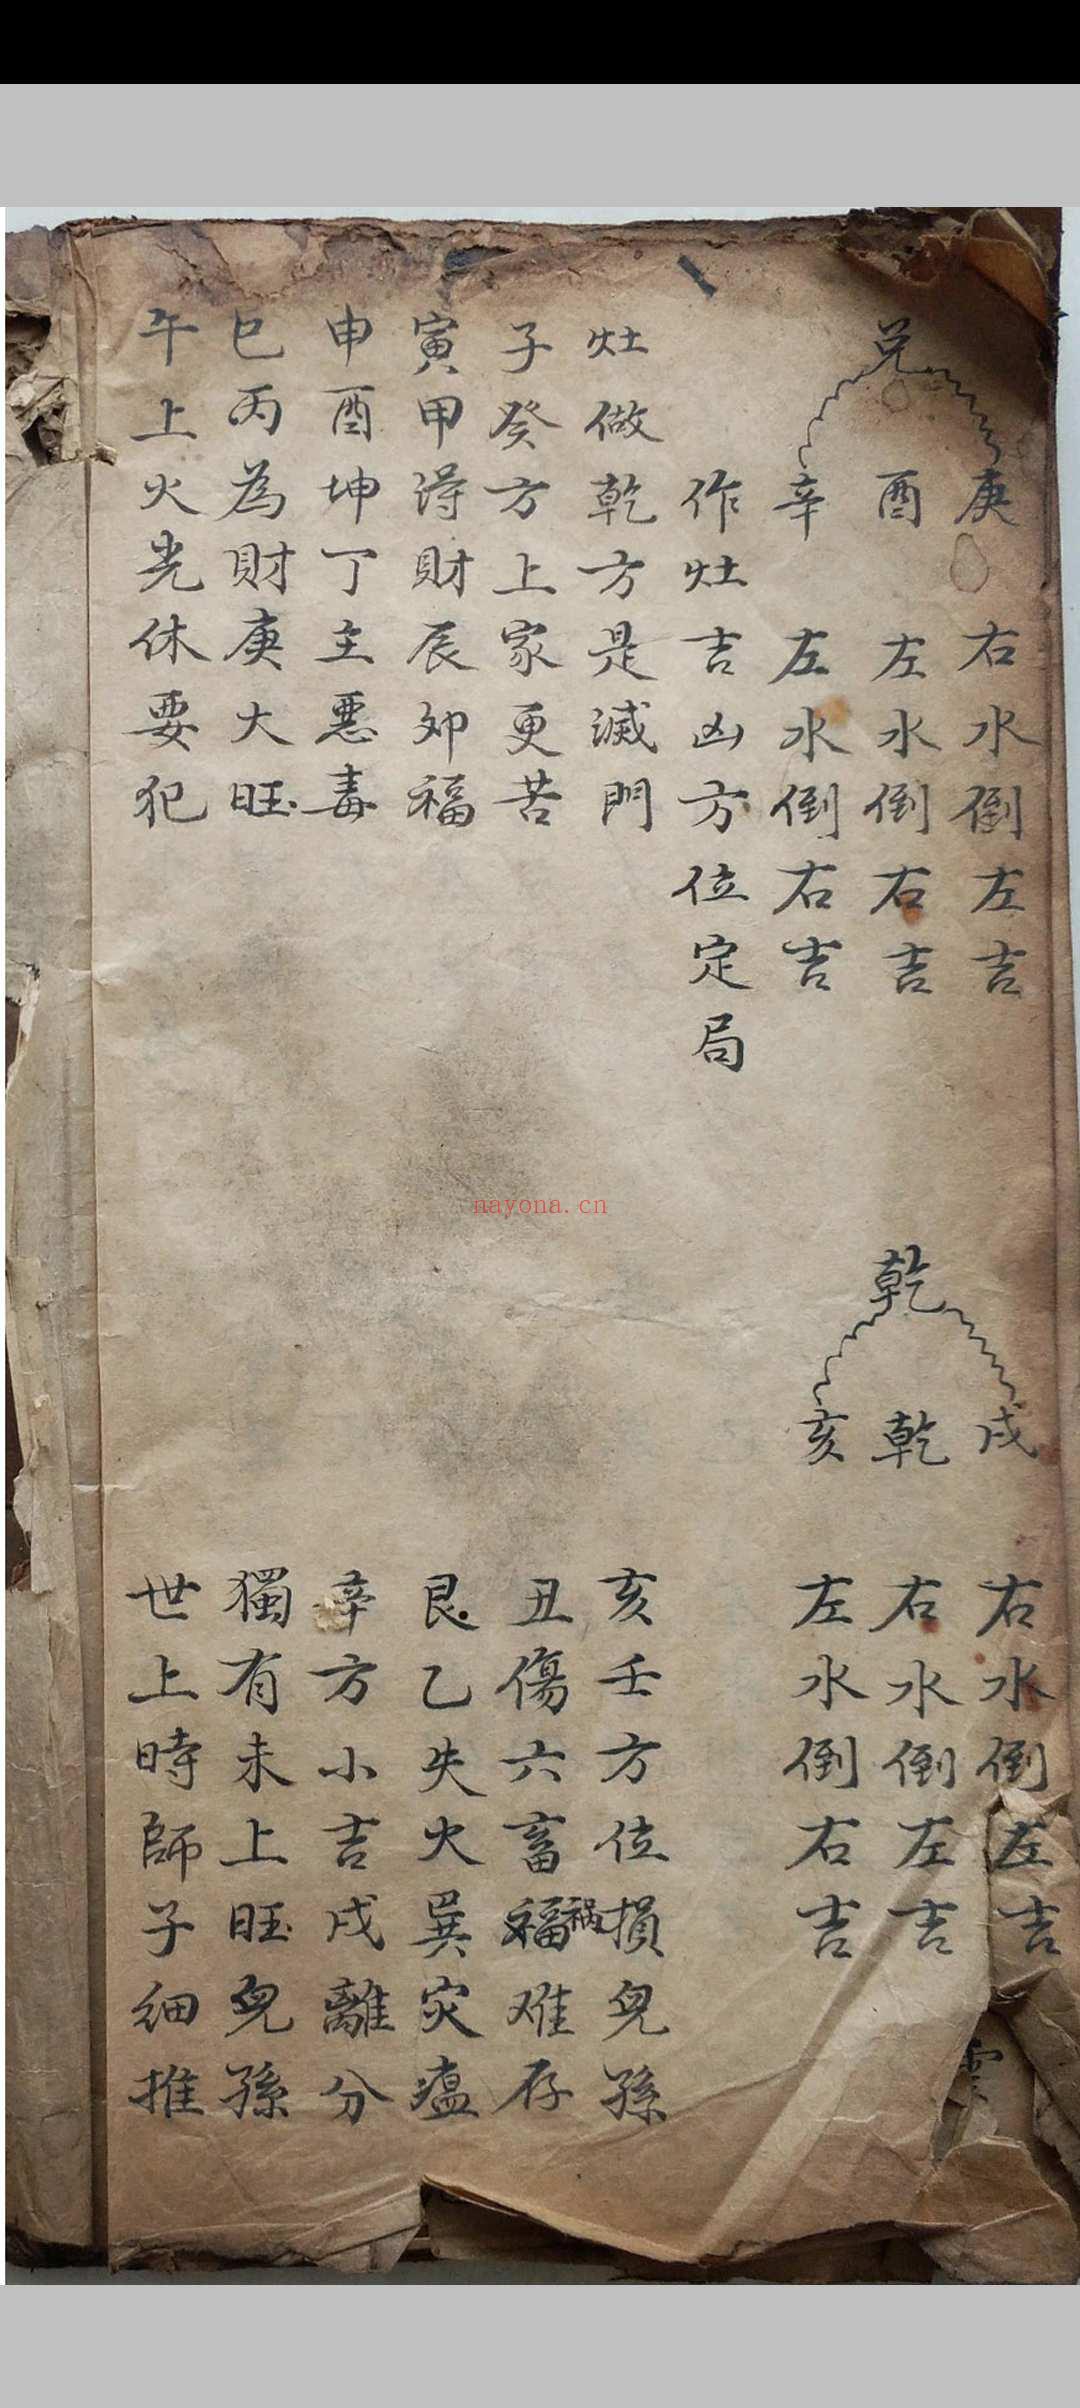 兑
庚 右水倒左吉
酉 左水倒右吉
辛 左水倒右吉
乾
戌 右水倒左吉
乾 右水倒左吉
亥 左水倒右吉
作灶吉凶方位定局
灶做乾方是滅門 亥壬方位損兒孫
子癸方上家更苦 丑傷六畜福祸难存
寅甲得財辰卯福 艮乙失火巽灾瘟
申酉坤丁主惡毒 辛方小吉戌離分
巳丙為財庚大旺 獨有未上旺兒孫
午上火光休要犯 世上時師子细推
靈
nayona.cn